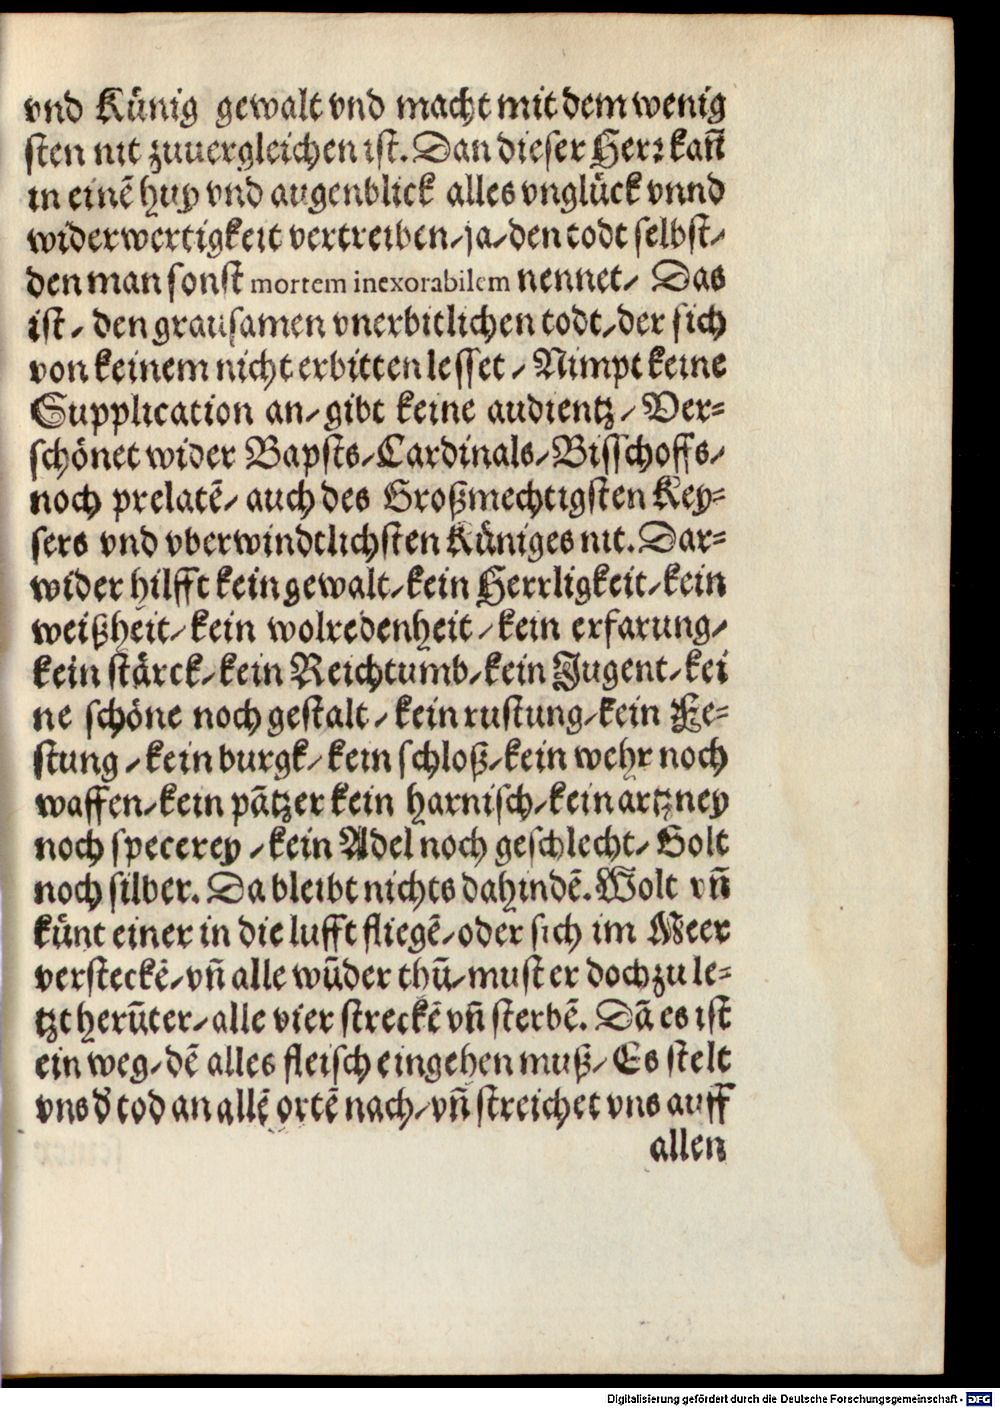 vnd Künig gewalt vnd macht mit dem wenig
sten nit zuuergleichen ist. Dan dieser Herr kañ
in einẽ huy vnd augenblick alles vnglück vnnd
widerwertigkeit vertreiben/ ja/ den todt selbst/
den man sonst mortem inexorabilem nennet/ Das
ist/ den grausamen vnerbitlichen todt/ der sich
von keinem nicht erbitten lesset/ Nimpt keine
Supplication an/ gibt keine audientz/ Ver⸗
schönet wider Bapsts/ Cardinals/ Bisschoffs/
noch prelatẽ/ auch des Großmechtigsten Key⸗
sers vnd vberwindtlichsten Küniges nit. Dar⸗
wider hilfft kein gewalt/ kein Herrligkeit/ kein
weißheit/ kein wolredenheit/ kein erfarung/
kein stärck/ kein Reichtumb/ kein Jugent/ kei
ne schöne noch gestalt/ kein rustung/ kein Fe⸗
stung/ kein burgk/ kein schloß/ kein wehr noch
waffen/ kein pãtzer kein harnisch/ kein artzney
noch specerey/ kein Adel noch geschlecht/ Golt
noch silber. Da bleibt nichts dahindẽ. Wolt vñ
künt einer in die lufft fliegẽ/ oder sich im Meer
versteckẽ/ vñ alle wũder thũ/ must er doch zu le⸗
tzt herũter/ alle vier streckẽ vñ sterbẽ. Dã es ist
ein weg/ dẽ alles fleisch eingehen muß/ Es stelt
vns d̕ tod an allẽ ortẽ nach/ vñ streichet vns auff
allen
Digitalisierung gefördert durch die Deutsche Forschungsgemeinschaft - DFG